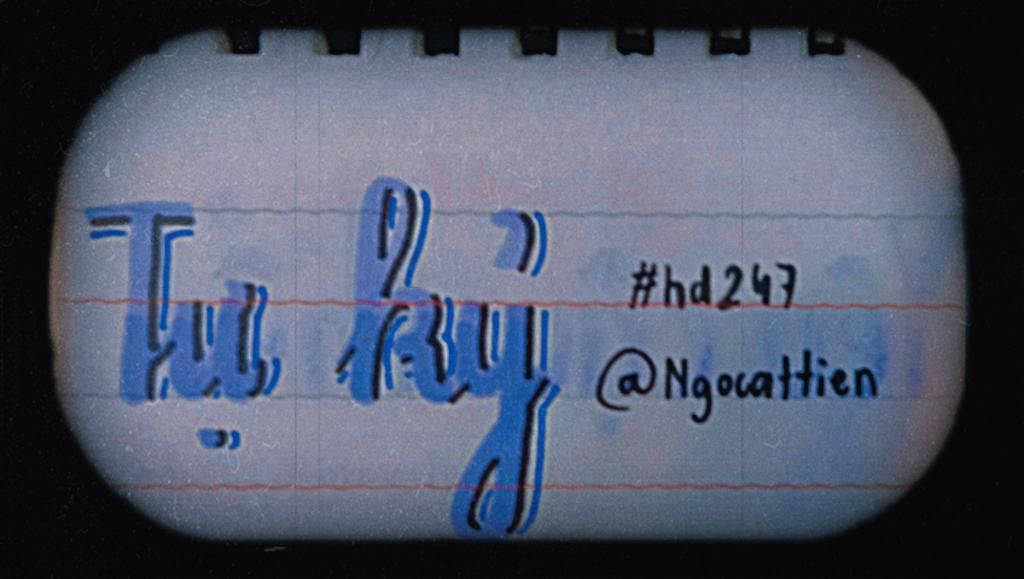 Tự kỷ
#hd247
@Ngocattien